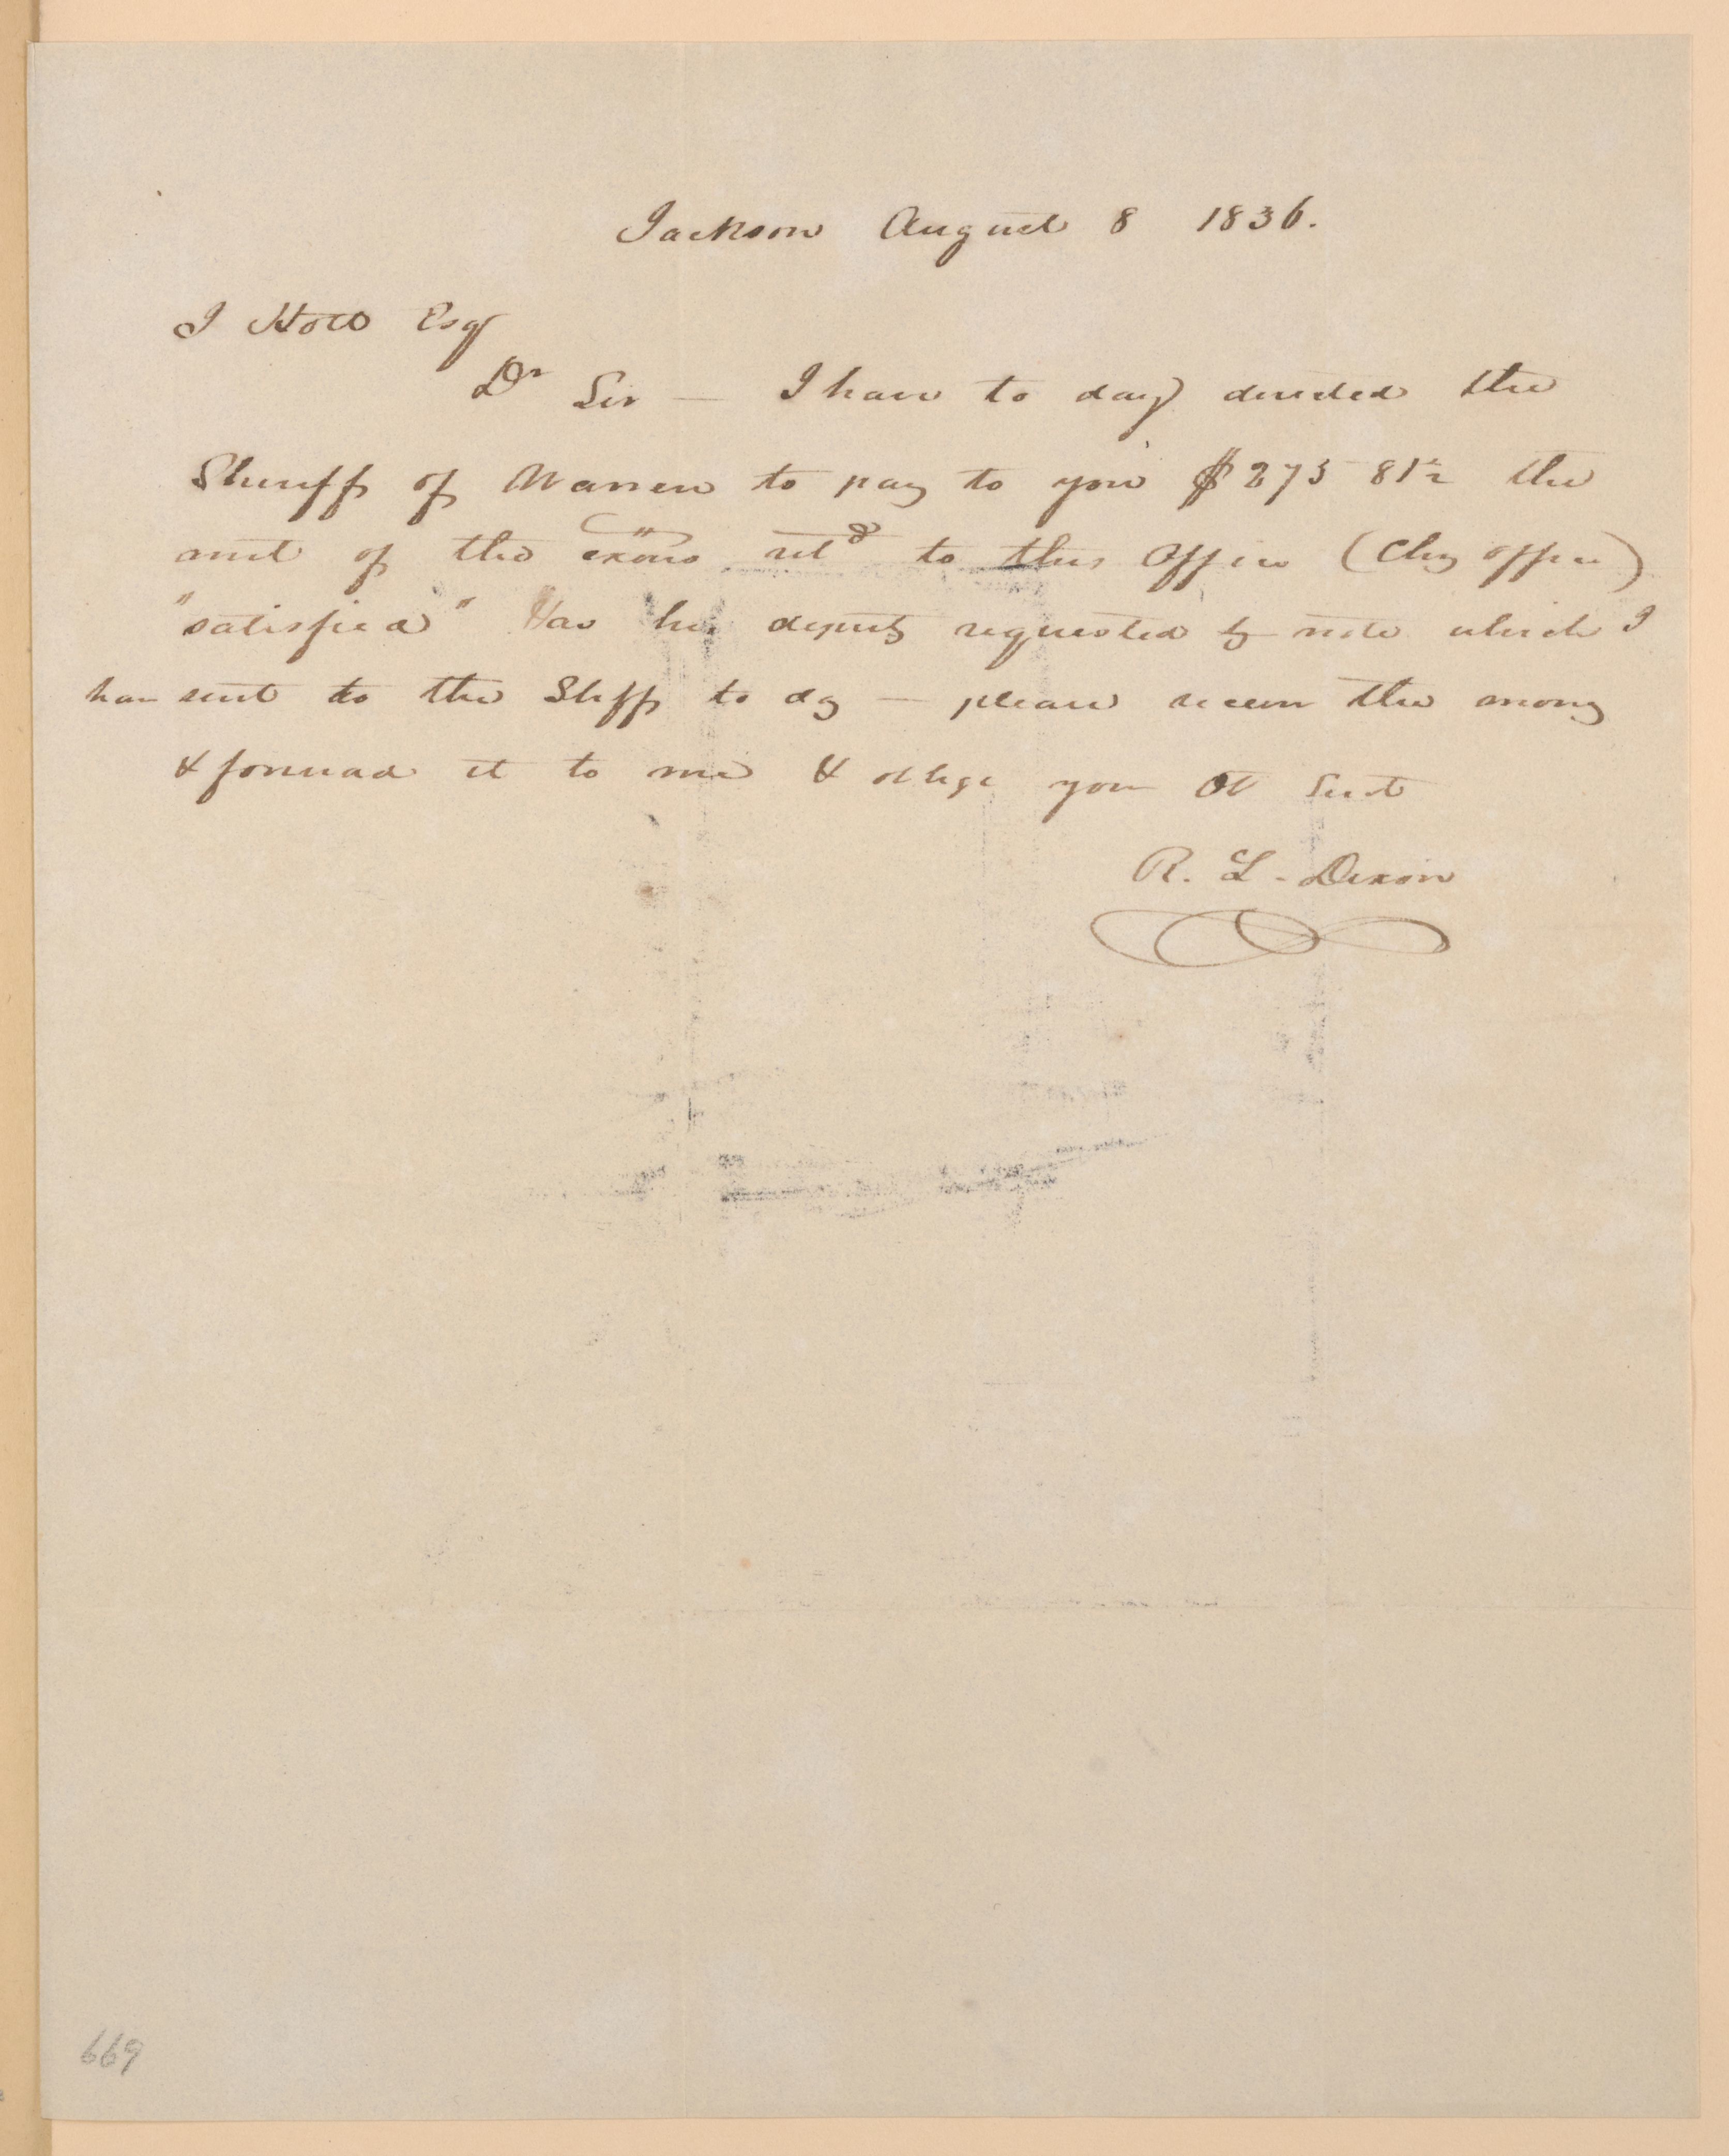 Jackson August 8 1836.
J Holt Esq
Dr Sir — I have to day directed the
Sheriff of Warren to pay to you $275 81½ the
amt of the exons retd to this Office (Chy office)
"satisfied" Has his deputy requested by note which I
have sent to the Shff to dy — please receive the money
& forward it to me & oblige your Ob Servt
R. L. Dixon
669